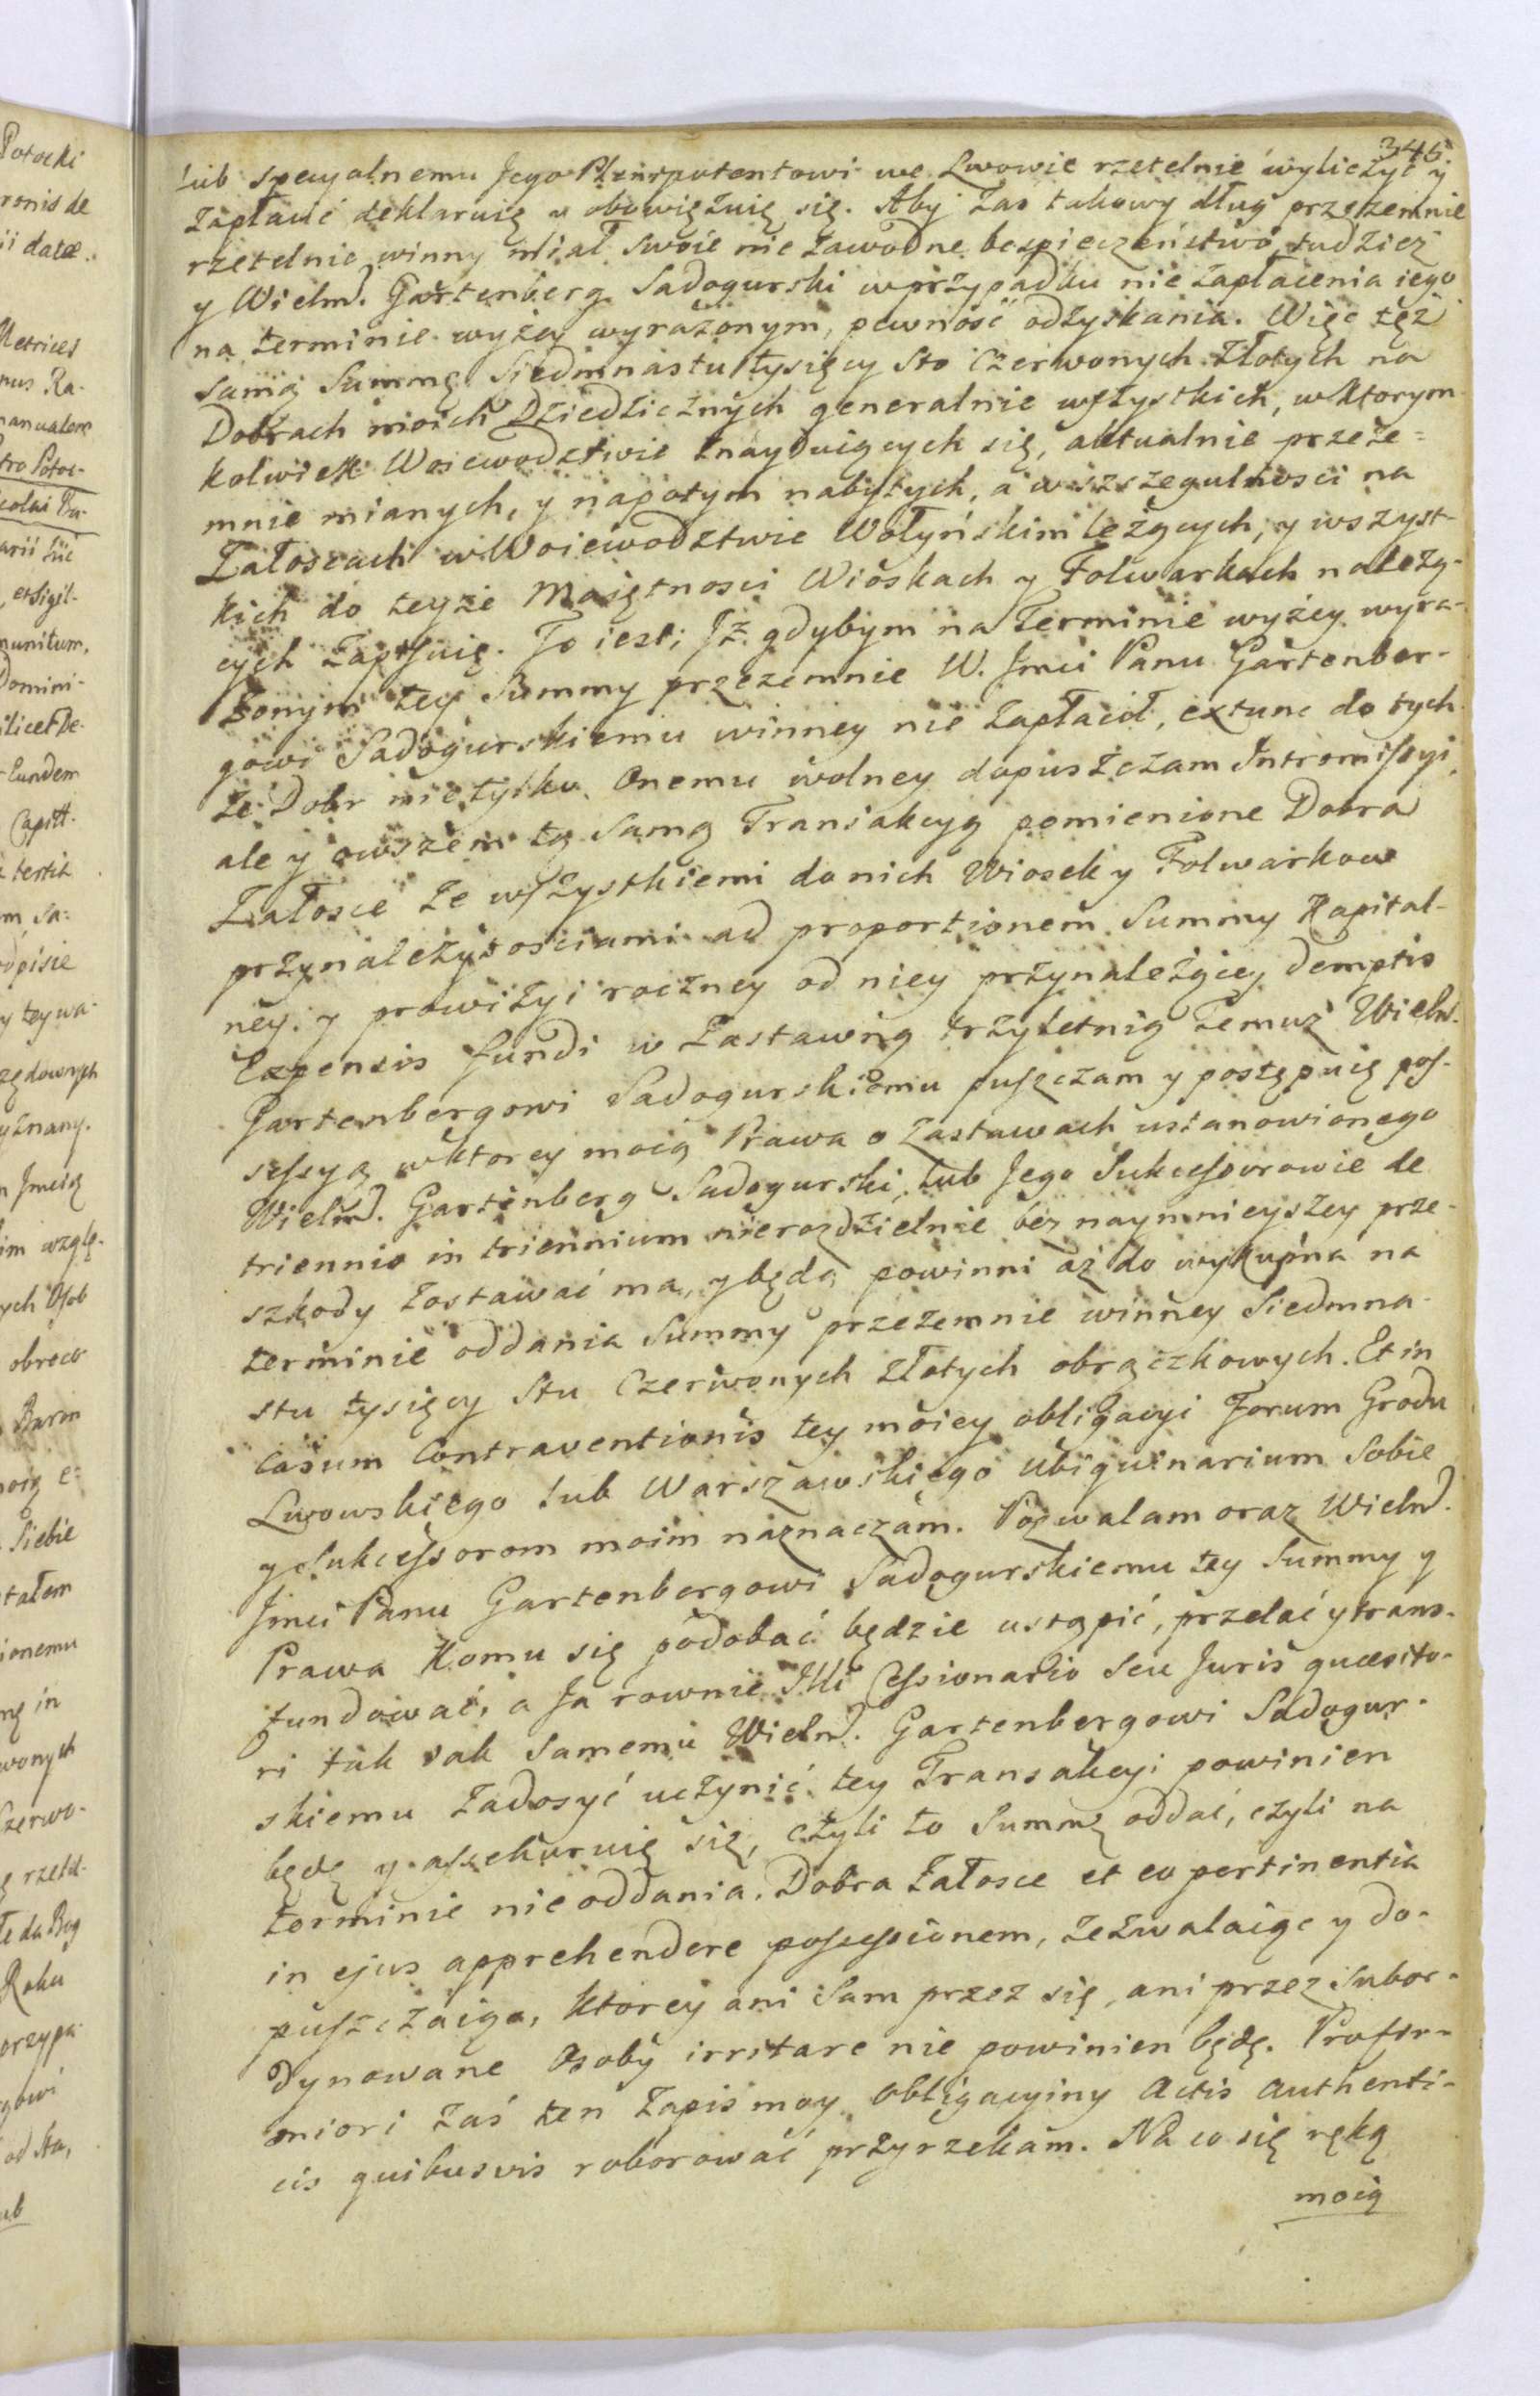 345.
lub specyalnemu Jego Plenipotentowi we Lwowie rzetelnie wyliczyć y
zapłacić deklaruię y obowięzuię się. Aby zas takowy dług przezemnie
rzetelnie winny miał swoie nie zawodne bespieczeństwo, tudziesz
y Wielm. Gartenberg Sadogurski w przypadku nie zapłacenia iego
na terminie wyżey wyrażonym, pewność odzyskania. Więc tęż
samą Summę Siedmnastu tysięcy Sto Czerwonych Złotych na
Dobrach moich Dziedzicznych generalnie wszystkich, w ktorym
kolwiek Woiewodztwie znayduiących się, aktualnie przeze=
mnie mianych, y napotym nabytych, a w szszegulności na
Załoscach w Woiewodztwie Wołyńskim leżących, y wszyst-
kich do teyże Maiętnosci Wioskach y Folwarkach należą-
cych zapisuię. To iest; Iż gdybym na Terminie wyżey wyra-
żonym tey Summy przezemnie W. Jmci Panu Gartenber-
gowi Sadogurskiemu winney nie zapłacił, extunc do tych
że Dobr nie tylko Onemu wolney dopuszczam Intromissyi,
ale y owszem tą samą Transakcyą pomienione Dobra
Załosce ze wszystkiemi do nich Wiosek y Folwarkow
przynależytościami ad proportionem Summy Kapital-
ney y prowizyi roczney od niey przynależącey demptis
Expensis fundi w Zastawną trzyletnią temuż Wielm.
Gartenbergowi Sadogurskiemu puszczam y postępuię pos-
sessyą w ktorey mocą Prawa o Zastawach ustanowionego
Wielm. Gartenberg Sadogurski, lub Jego Sukcessorowie de
triennio in triennium nierozdzielnie bez naymnieyszey prze-
szkody zostawać ma, y będą powinni aż do wykupna na
terminie oddania Summy przezemnie winney Siedmna-
stu tysięcy Stu Czerwonych Złotych obrączkowych. Et in
Casum Contraventionis tey moiey obligacyi Forum Grodu
Lwowskiego lub Warszawskiego ubiquinarium Sobie
y Sukcessorom moim naznaczam. Pozwalam oraz Wielm.
Jmci Panu Gartenbergowi Sadogurskiemu tey Summy y
Prawa Komu się podobać będzie ustąpić, przelać y trans-
fundować, a Ja rownie Illi Cessionario seu Juris quaesito-
ri tak iak samemu Wielm. Gartenbergowi Sadogur-
skiemu zadosyć uczynić tey Transakcyi powinien
będę y assekuruię się, czyli to Summę oddać, czyli na
terminie nie oddania, Dobra Załosce et eo pertinentia
in ejus apprehendere possessionem, zezwalaiąc y do-
puszczaiąc, ktorey ani sam przez się, ani przez subor-
dynowane Osoby irritare nie powinien będę. Pro fir-
miori zaś ten zapis moy obligacyiny Actis Authenti-
cis quibusvis roborować przyrzekam. Na co się ręką
moią